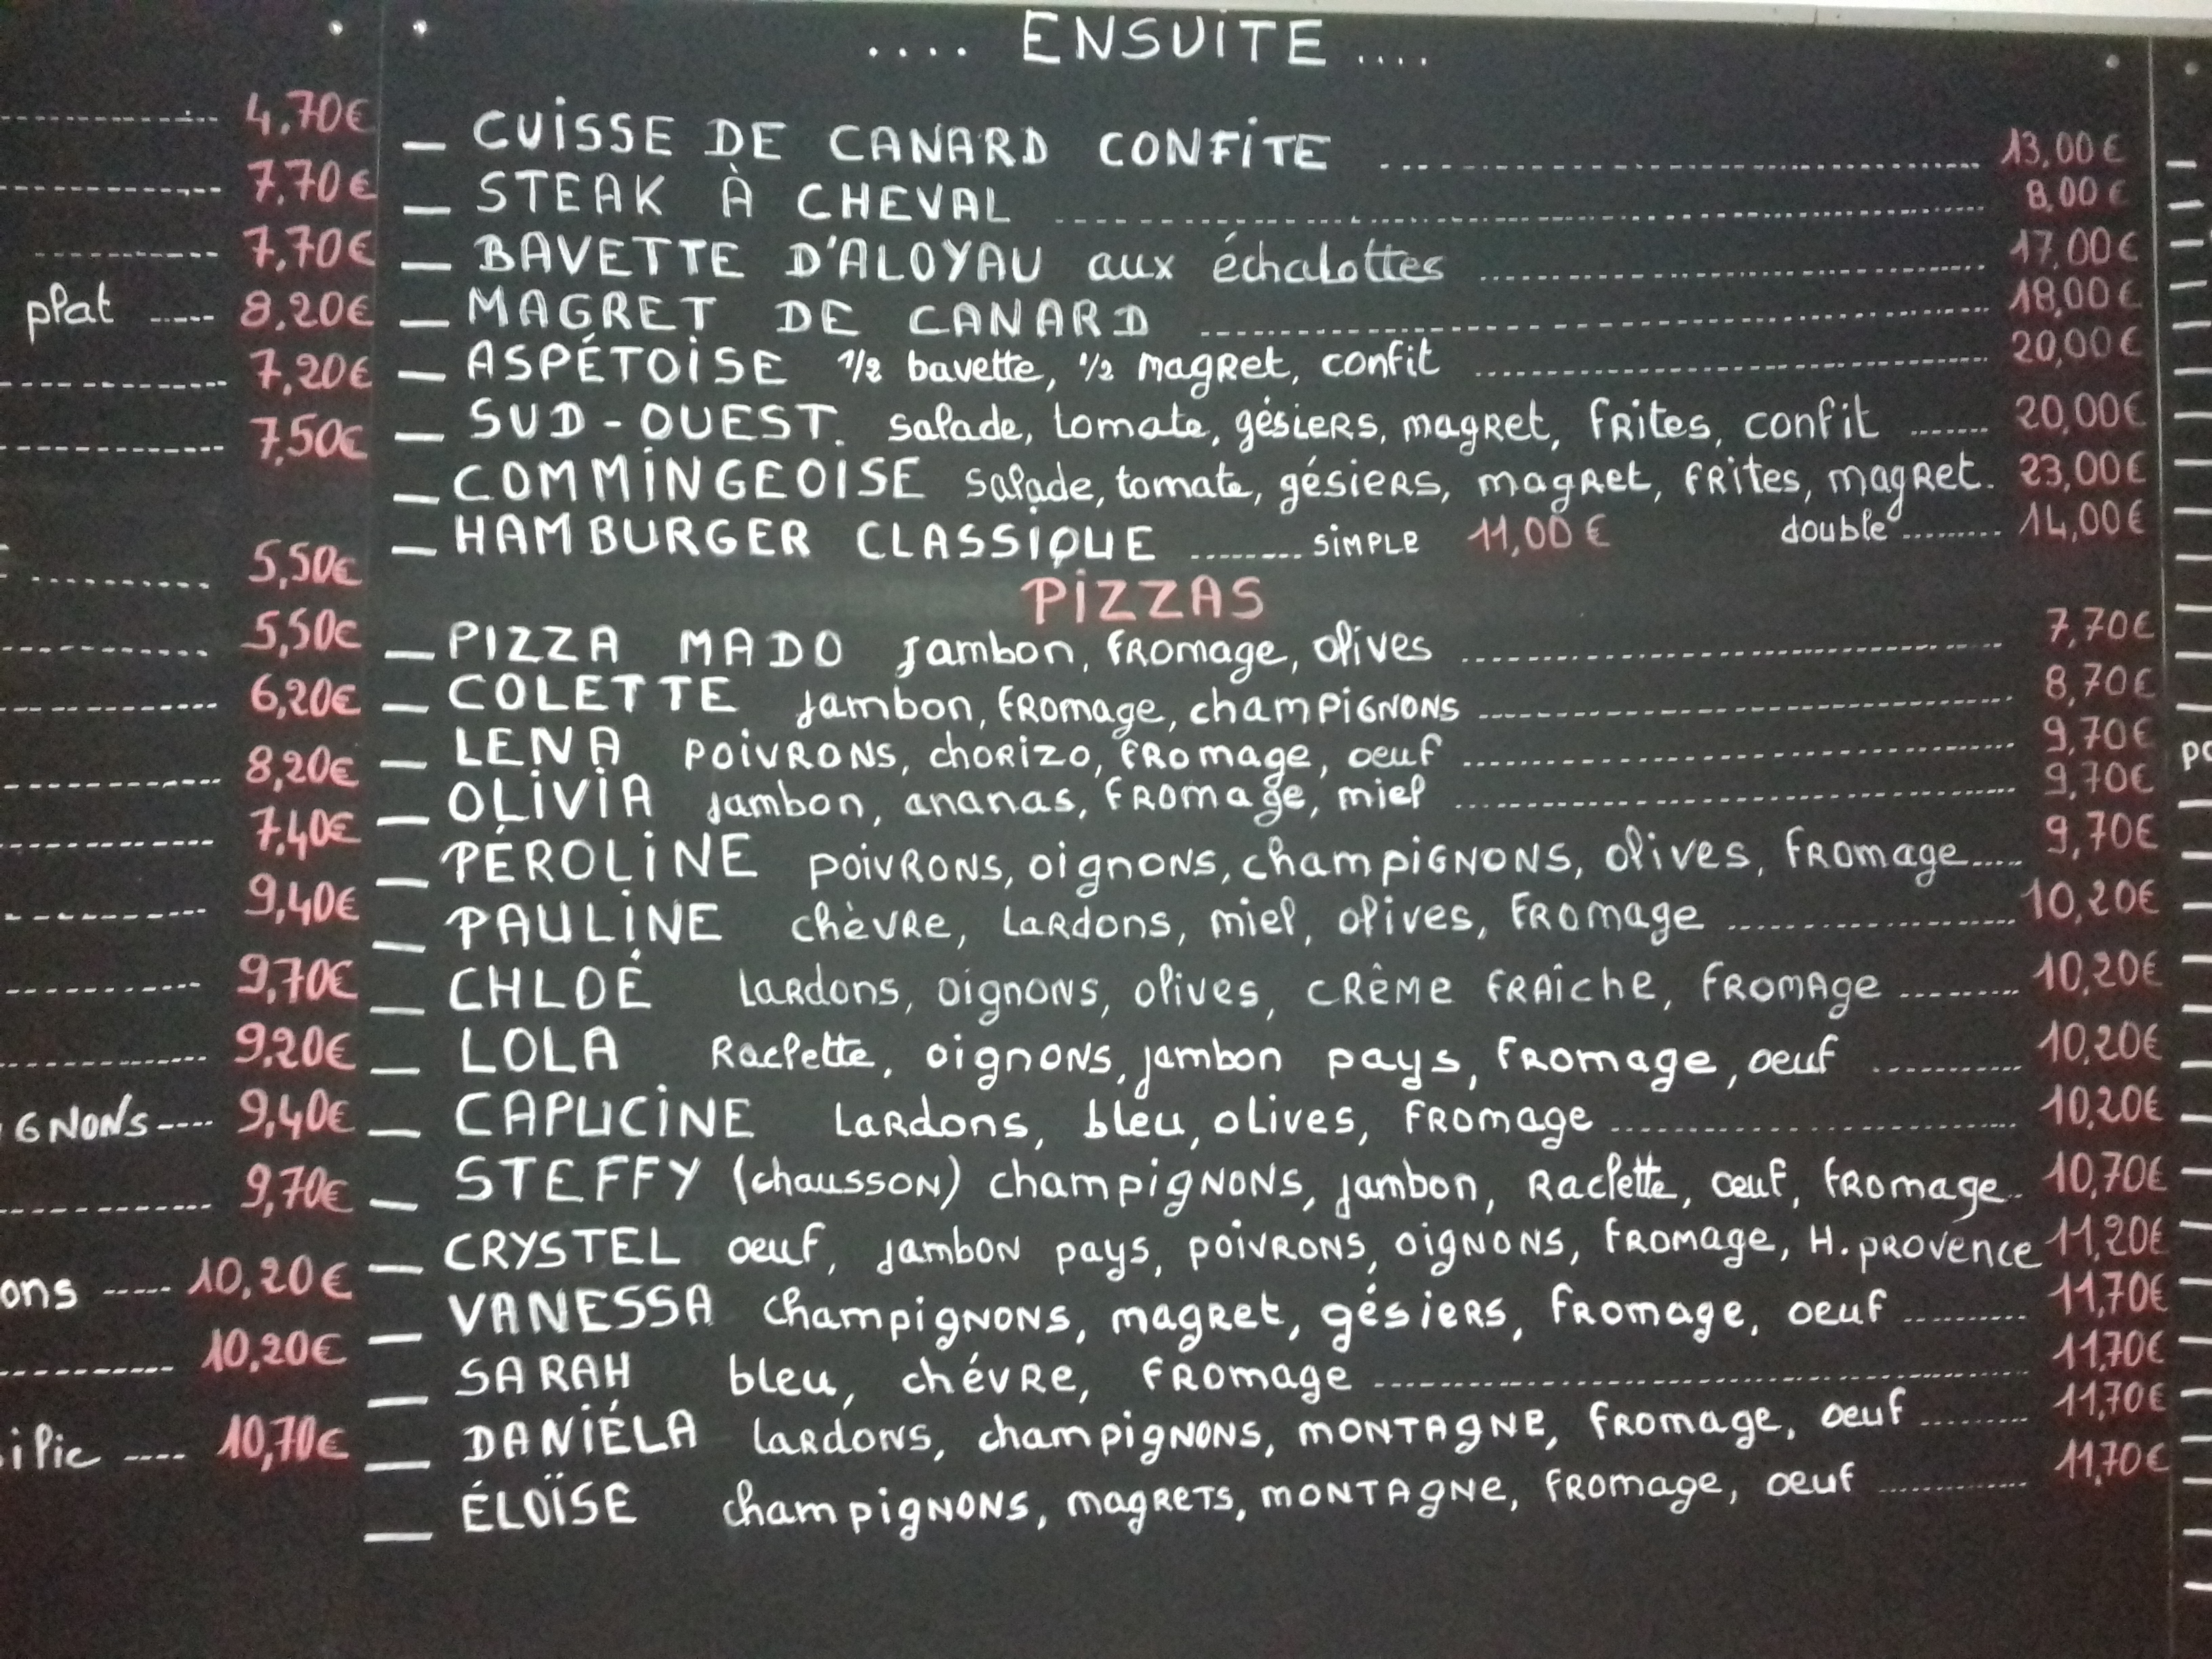 .... ENSUITE ....
4,70€
7,70€
7,70€
plat ----- 8,20€
7,20€
7,50€
5,50€
5,50€
6,20€
8,20€
7,40€
9,40€
9,70€
9,20€
GNONS ---- 9,40€
9,70€
ons ----- 10,20€
10,20€
10,70€
_ CUISSE DE CANARD CONFITE 13,00€
_ STEAK À CHEVAL 8,00€
_ BAVETTE D'ALOYAU aux échalottes 17,00€
_ MAGRET DE CANARD 18,00€
_ ASPÉTOISE 1/2 bavette, 1/2 magret, confit 20,00€
_ SUD-OUEST. salade, tomate, gésiers, magret, frites, confit 20,00€
_ COMMINGEOISE salade, tomate, gésiers, magret, frites, magret. 23,00€
_ HAMBURGER CLASSIQUE simple 11,00€ double 14,00€
PIZZAS
_ PIZZA MADO jambon, fromage, olives 7,70€
_ COLETTE jambon, fromage, champignons 8,70€
_ LENA poivrons, chorizo, fromage, oeuf 9,70€
_ OLIVIA jambon, ananas, fromage, miel 9,70€
_ PÉROLINE poivrons, oignons, champignons, olives, fromage 9,70€
_ PAULINE chèvre, lardons, miel, olives, fromage 10,20€
_ CHLOÉ lardons, oignons, olives, crême fraîche, fromage 10,20€
_ LOLA Raclette, oignons, jambon pays, fromage, oeuf 10,20€
_ CAPUCINE lardons, bleu, olives, fromage 10,20€
_ STEFFY (chausson) champignons, jambon, Raclette, oeuf, fromage 10,70€
_ CRYSTEL oeuf, jambon pays, poivrons, oignons, fromage, H. provence 11,20€
_ VANESSA champignons, magret, gésiers, fromage, oeuf 11,70€
_ SARAH bleu, chévre, fromage 11,70€
_ DANIÉLA lardons, champignons, montagne, fromage, oeuf 11,70€
_ ÉLOÏSE champignons, magrets, montagne, fromage, oeuf 11,70€